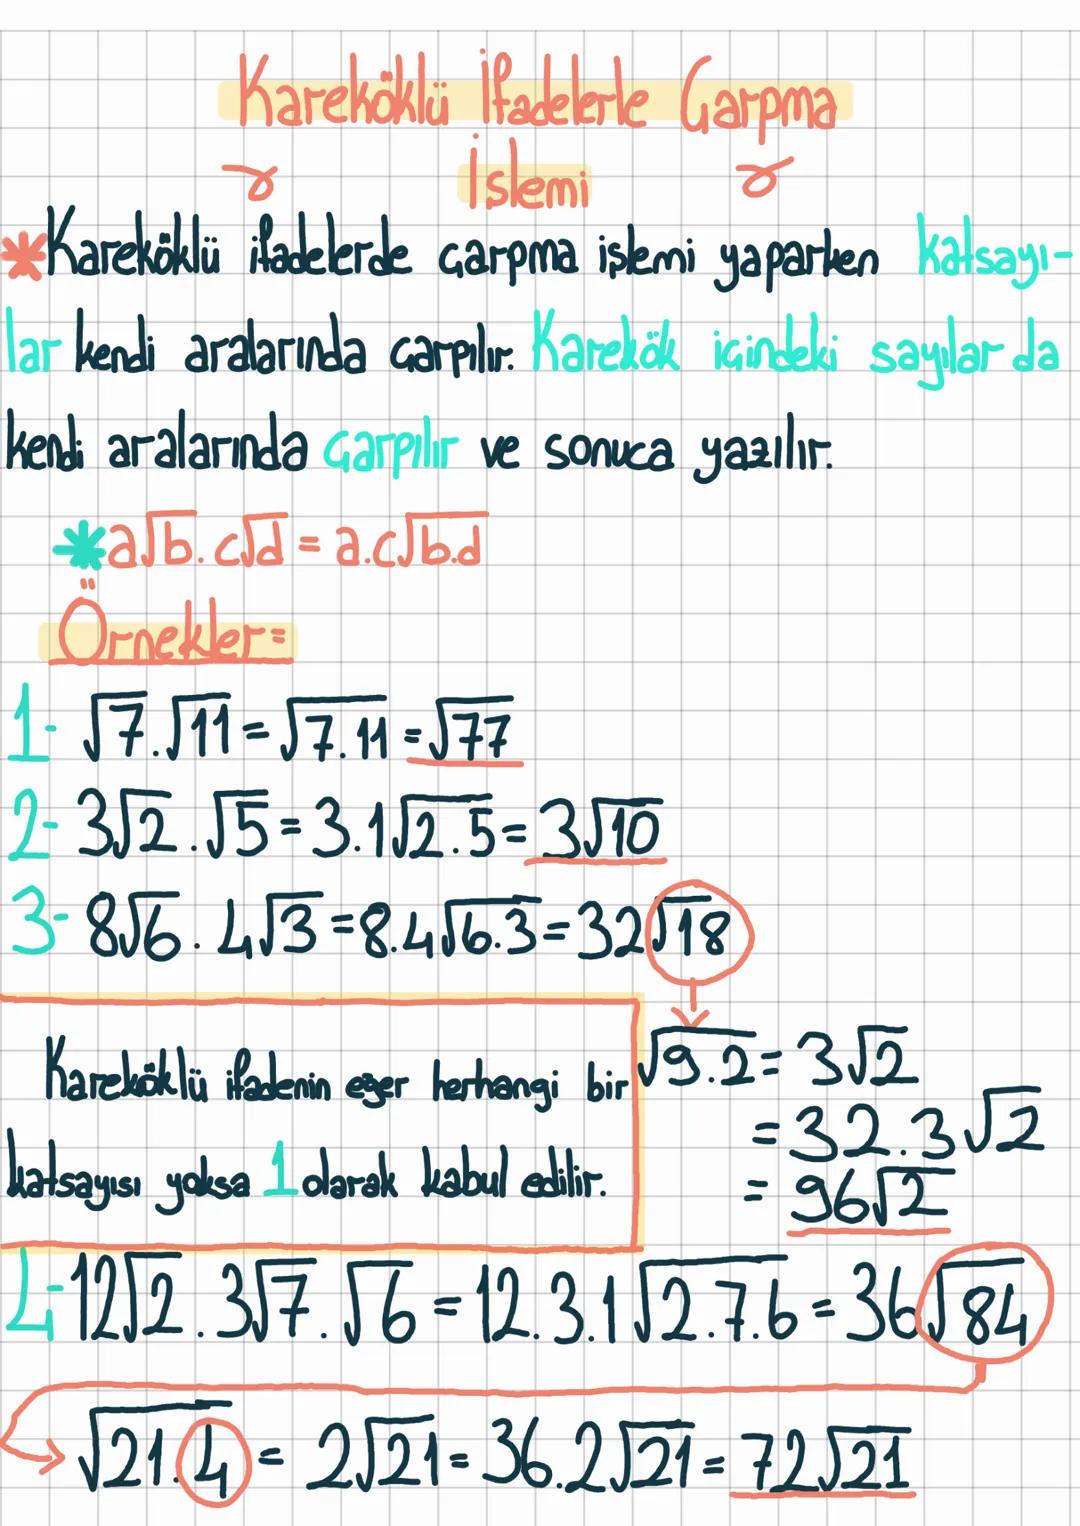 Kareköklü İfadelerle Çarpma
İşlemi
*Kareköklü ifadelerde çarpma işlemi yaparken katsayı-
lar kendi aralarında çarpılır. Karekök içindeki sayılar da
kendi aralarında çarpılır ve sonuca yazılır.
*a√b.c√d = a.c√b.d
Örnekler=
1- √7.√11=√7.11=√77
2- 3√2.√5=3.1√2.5=3√10
3- 8√6.4√3=8.4√6.3=32√18
√9.2=3√2
=32.3√2
=96√2
Kareköklü ifadenin eğer herhangi bir
katsayısı yoksa 1 olarak kabul edilir.
4-12√2.3√7.√6=12.3.1√2.7.6=36√84
√21.4=2√21=36.2√21=72√21